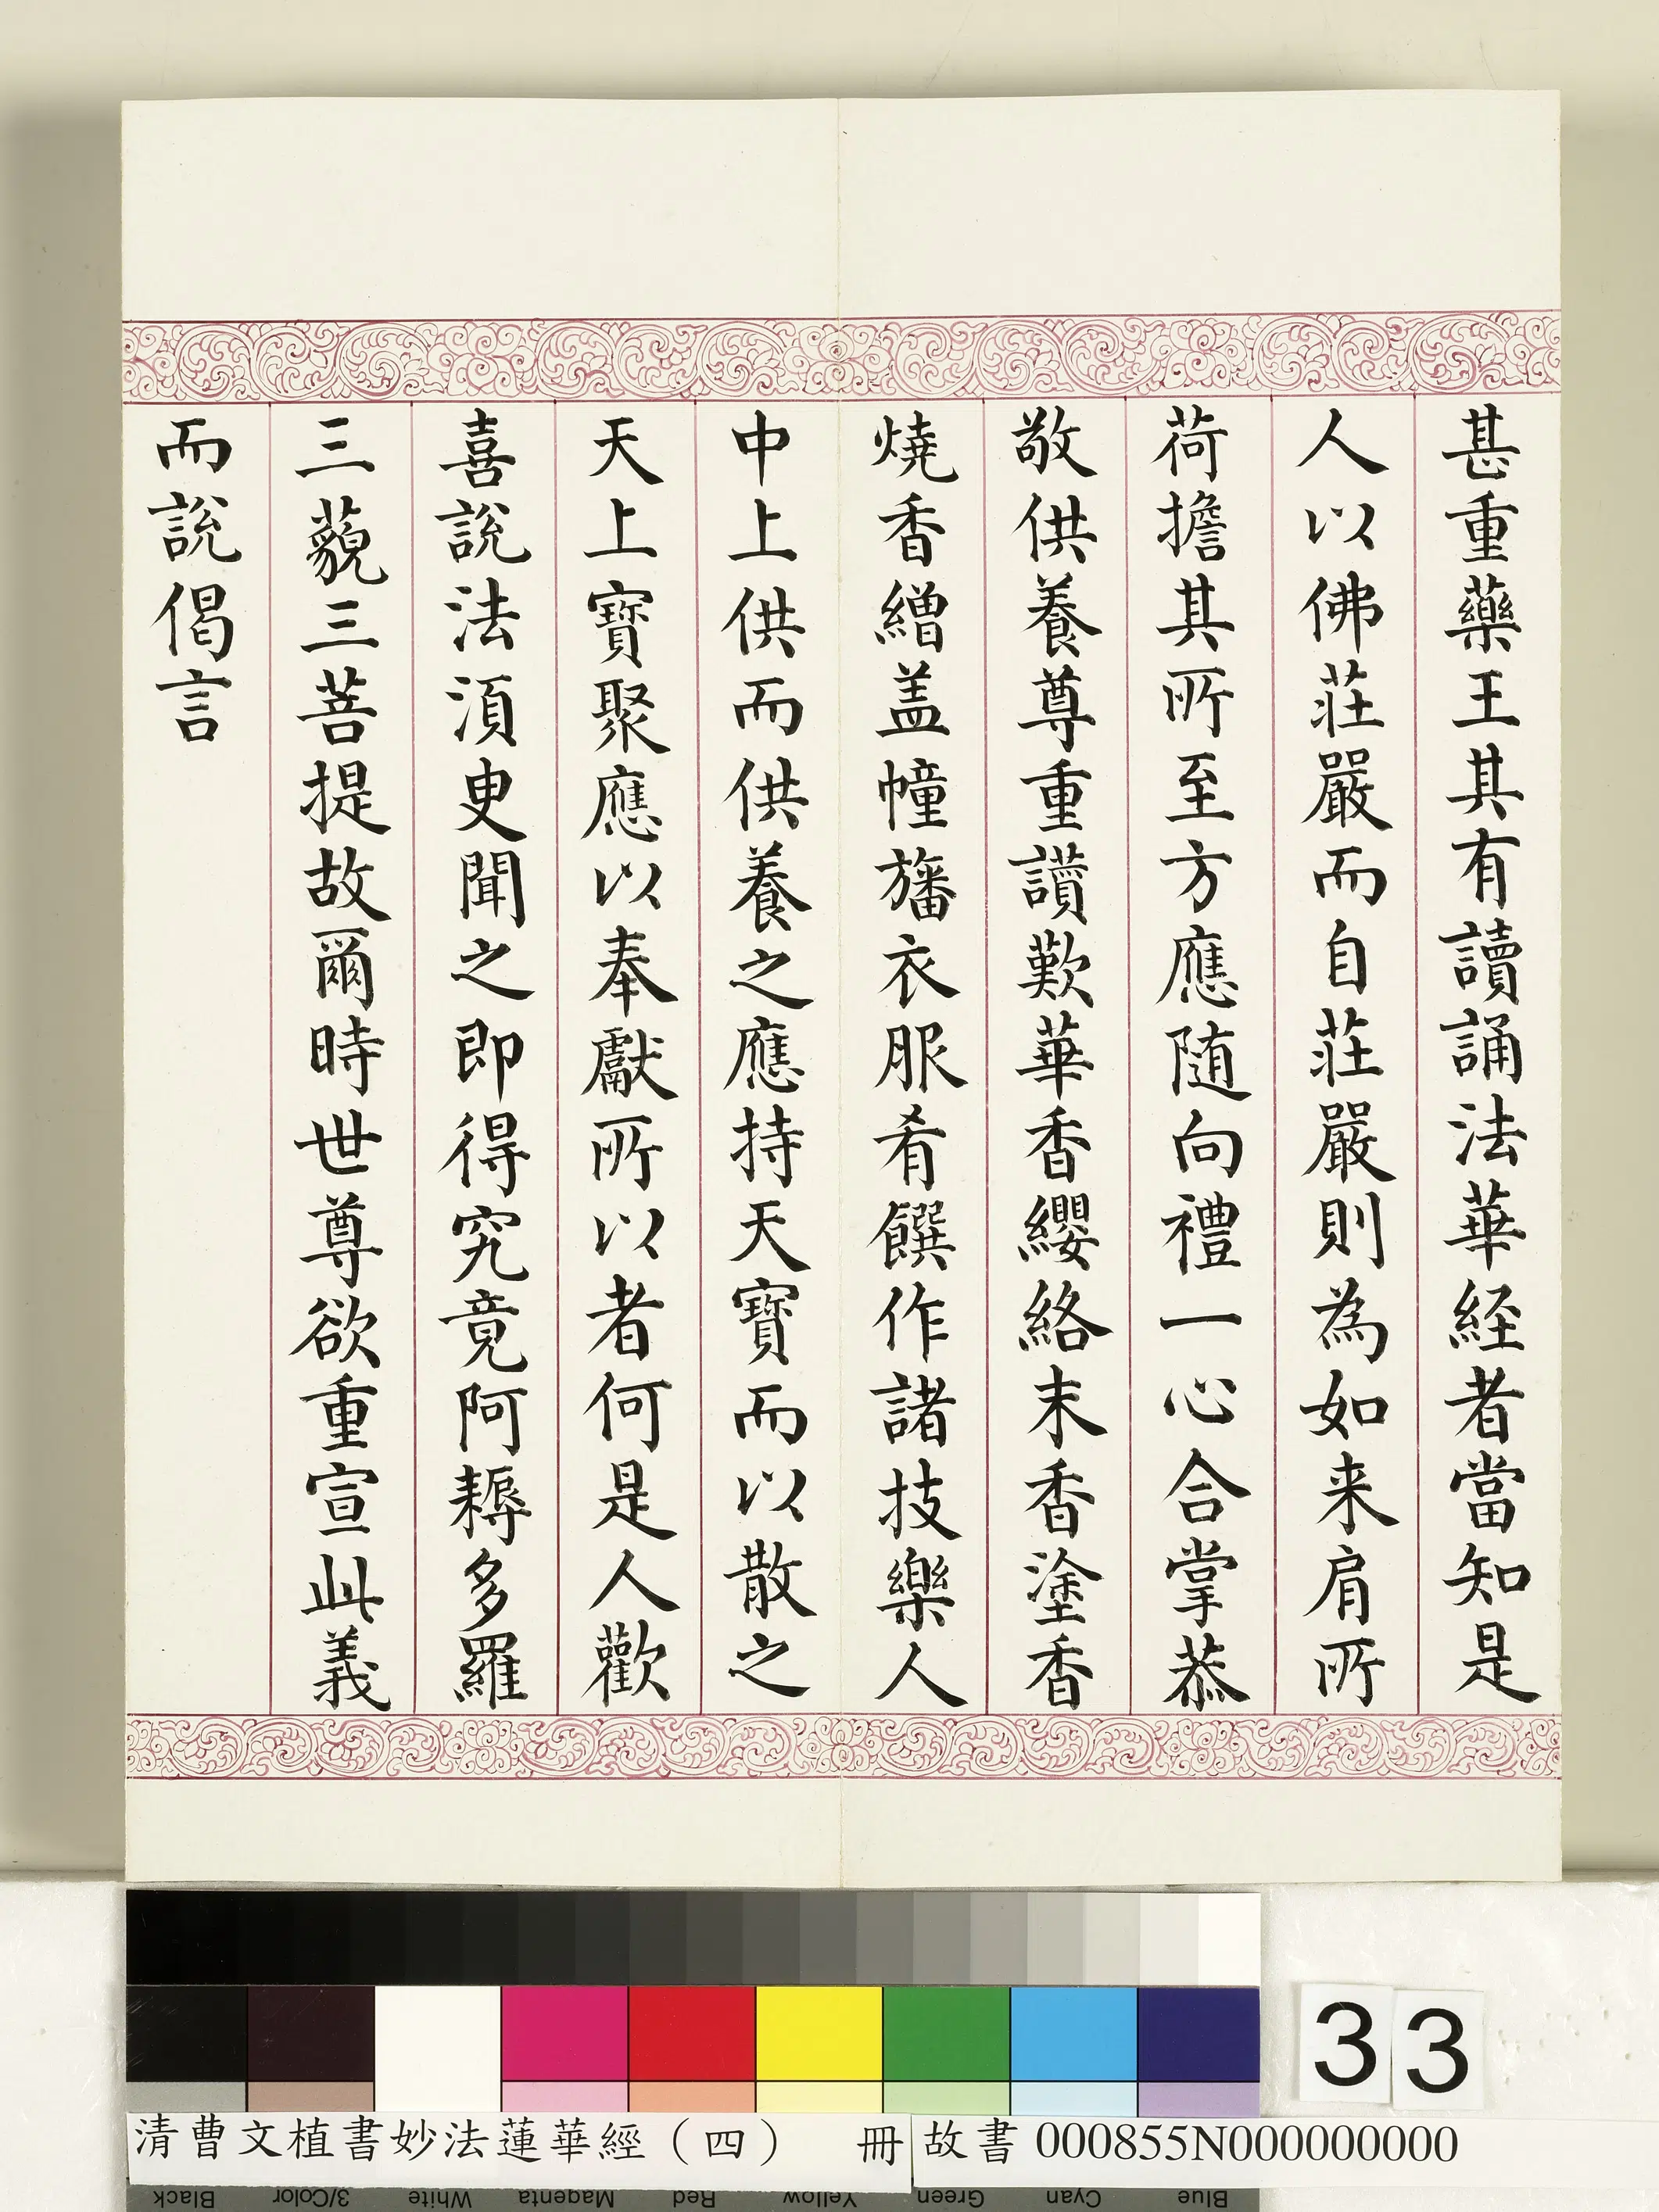 甚重藥王其有讀誦法華経者當知是
人以佛莊嚴而自莊嚴則為如来肩所
荷擔其所至方應随向禮一心合掌恭
敬供養尊重讃歎華香纓絡末香塗香
燒香繒盖幢旛衣服肴饌作諸技樂人
中上供而供養之應持天寶而以散之
天上寶聚應以奉獻所以者何是人歡
喜說法湏臾聞之即得究竟阿耨多羅
三藐三菩提故爾時世尊欲重宣此義
而說偈言
33
清曹文植書妙法蓮華經（四） 冊
故書 000855N000000000
Black 3/Color White Magenta Red Yellow Green Cyan Blue